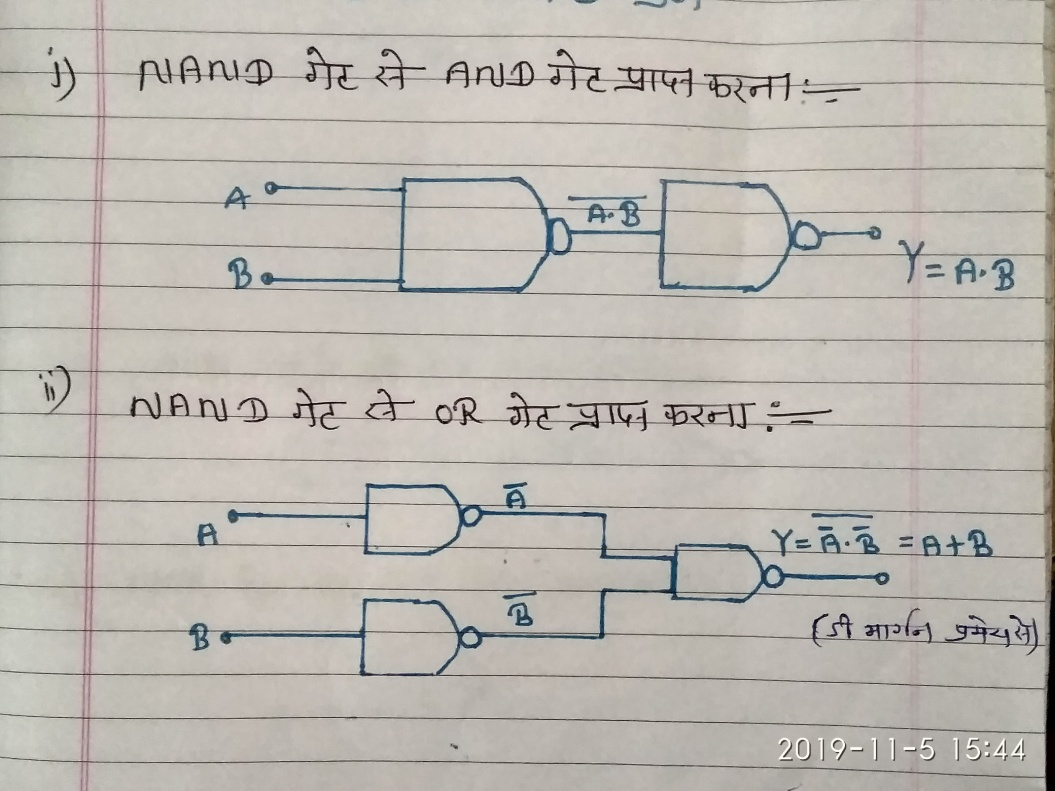 i) NAND गेट से AND गेट प्राप्त करना:=
A
B
A̅.̅B̅
Y=A.B
ii) NAND गेट से OR गेट प्राप्त करना:=
A
A̅
Y=\overline{A̅.B̅} =A+B
B
B̅
(डी मार्गन प्रमेय से)
2019-11-5 15:44